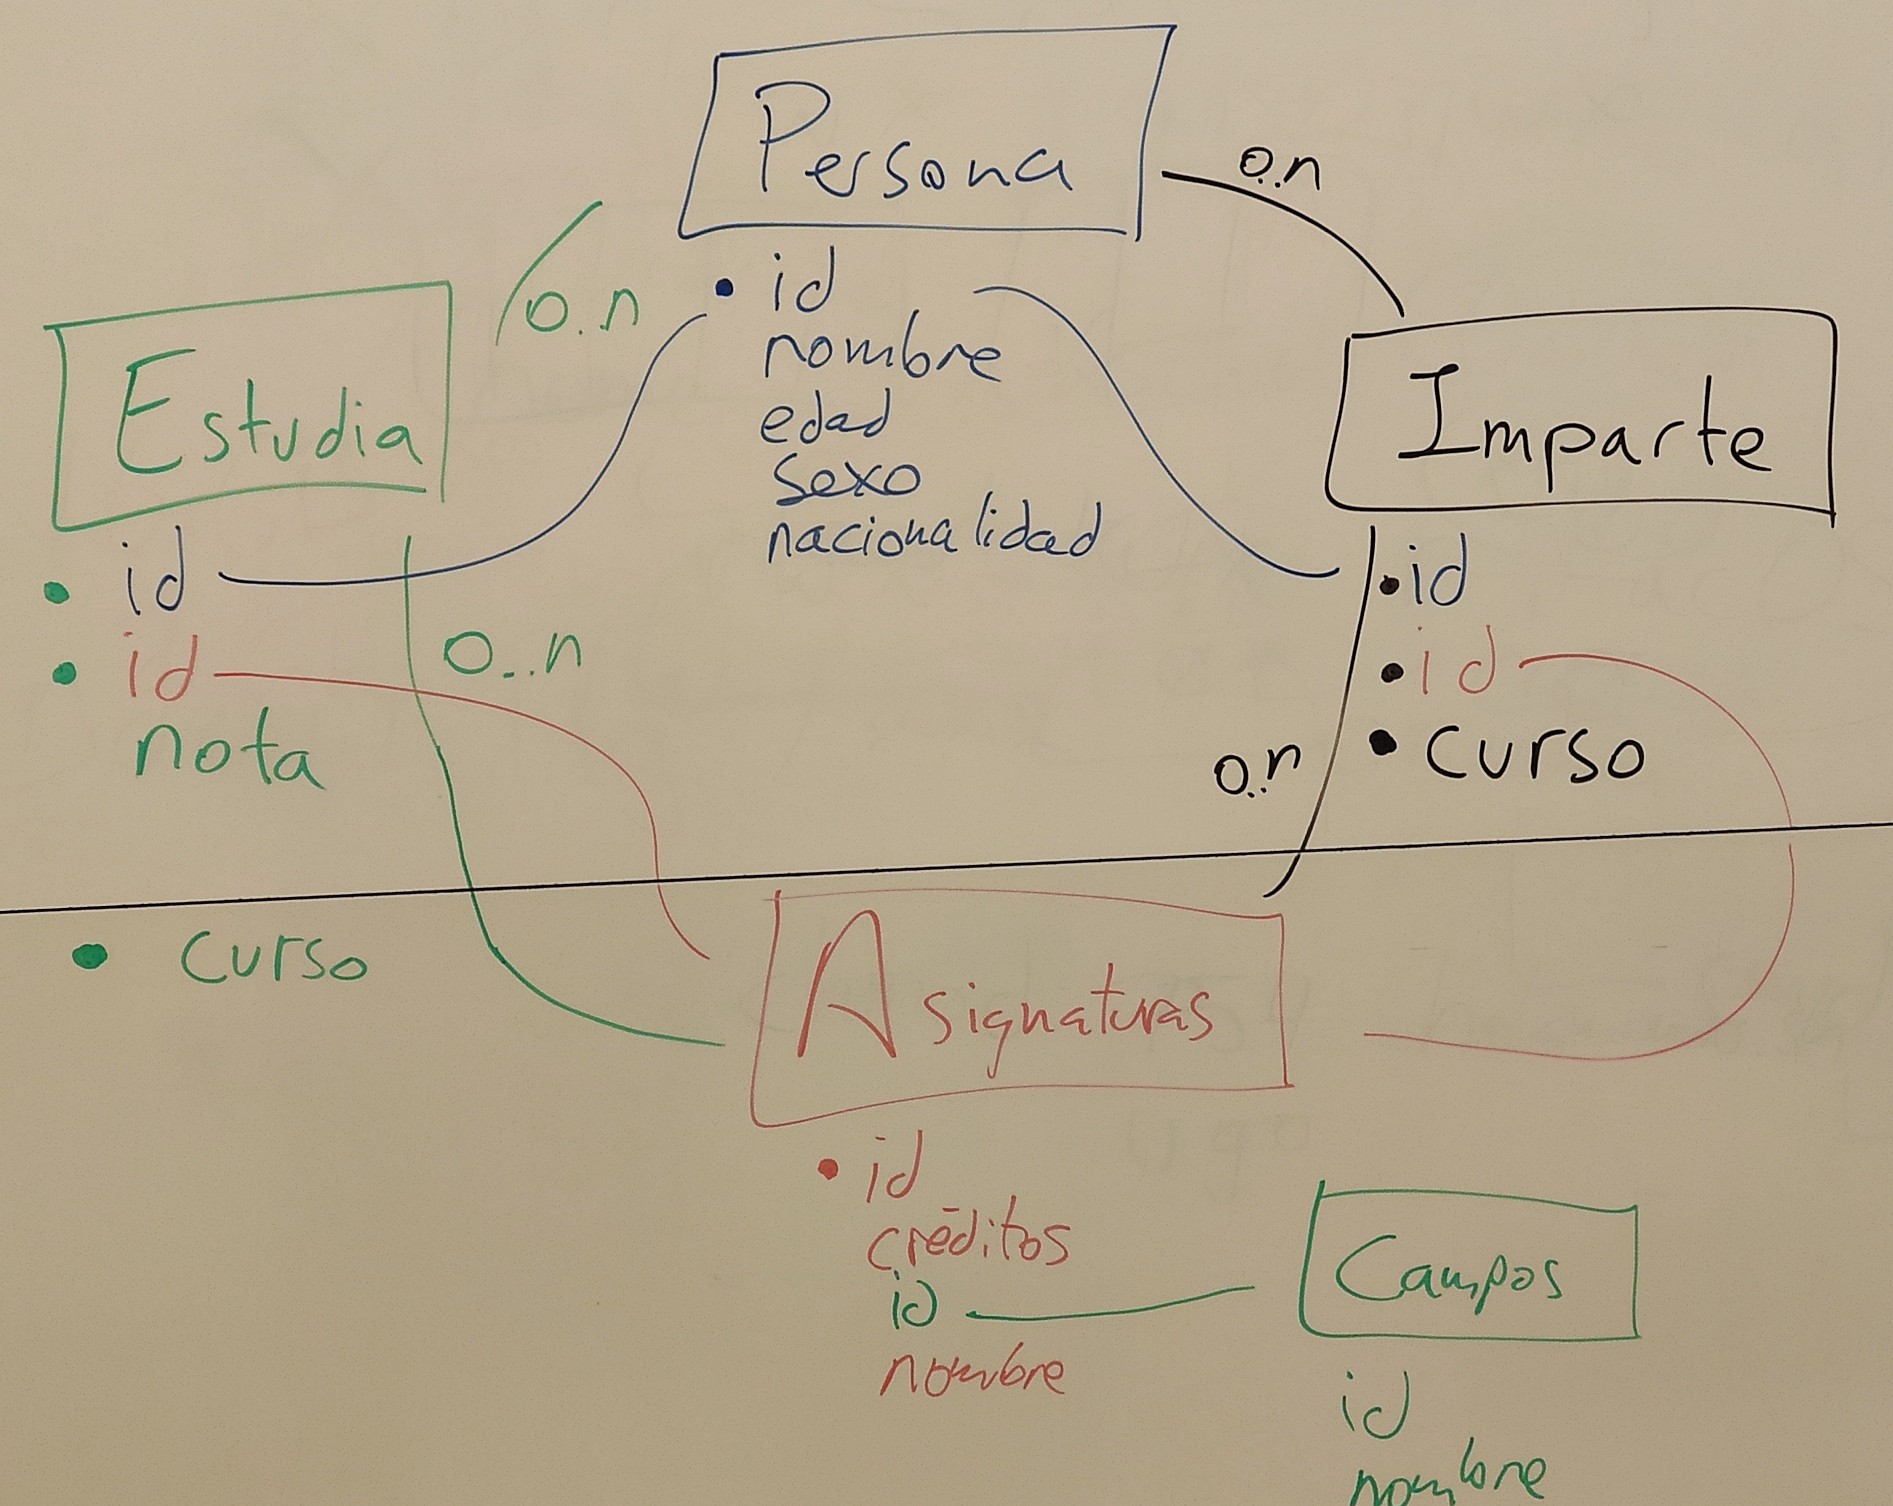 Persona
0..n
id
nombre
edad
sexo
nacionalidad
0..n
Estudia
id
id
nota
curso
0..n
Imparte
id
id
curso
0..n
Asignaturas
id
créditos
id
nombre
Campos
id
nombre